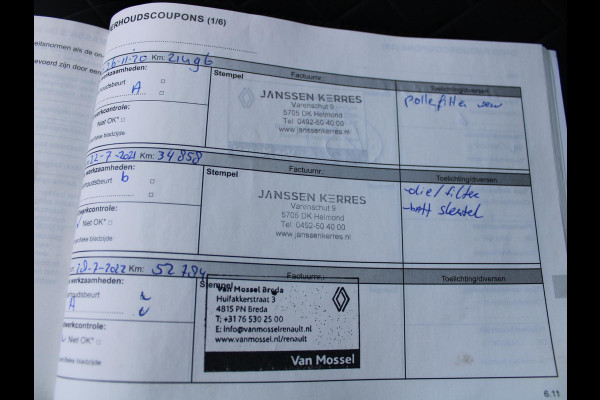 ERHOUDSCOUPONS (1/6)
eitsnormen als de on
evoerd zijn door een
26-11-20 Km: 21496
werkzaamheden:
oudsbeurt A
werkcontrole:
Niet OK*
ecifieke bladzijde
Stempel
Factuurnr.:
JANSSEN KERRES
Varenschut 9
5705 DK Helmond
Tel. 0492-50 40 00
www.janssenkerres.nl
Toelichting/diversen
pollefilter
12-7-2021 Km: 34 858
werkzaamheden:
houdsbeurt b
werkcontrole:
Niet OK*
ecifieke bladzijde
Stempel
Factuurnr.:
JANSSEN KERRES
Varenschut 9
5705 DK Helmond
Tel. 0492-50 40 00
www.janssenkerres.nl
Toelichting/diversen
-olie/filter
-batt sleutel
28-7-2022 Km: 52 784
werkzaamheden:
houdsbeurt
A
werkcontrole:
Niet OK*
ecifieke bladzijde
Stempel
Factuurnr.:
Van Mossel Breda
Huifakkerstraat 3
4815 PN Breda
T: +31 76 530 25 00
E: info@vanmosselrenault.nl
www.vanmossel.nl/renault
Van Mossel
Toelichting/diversen
6.11